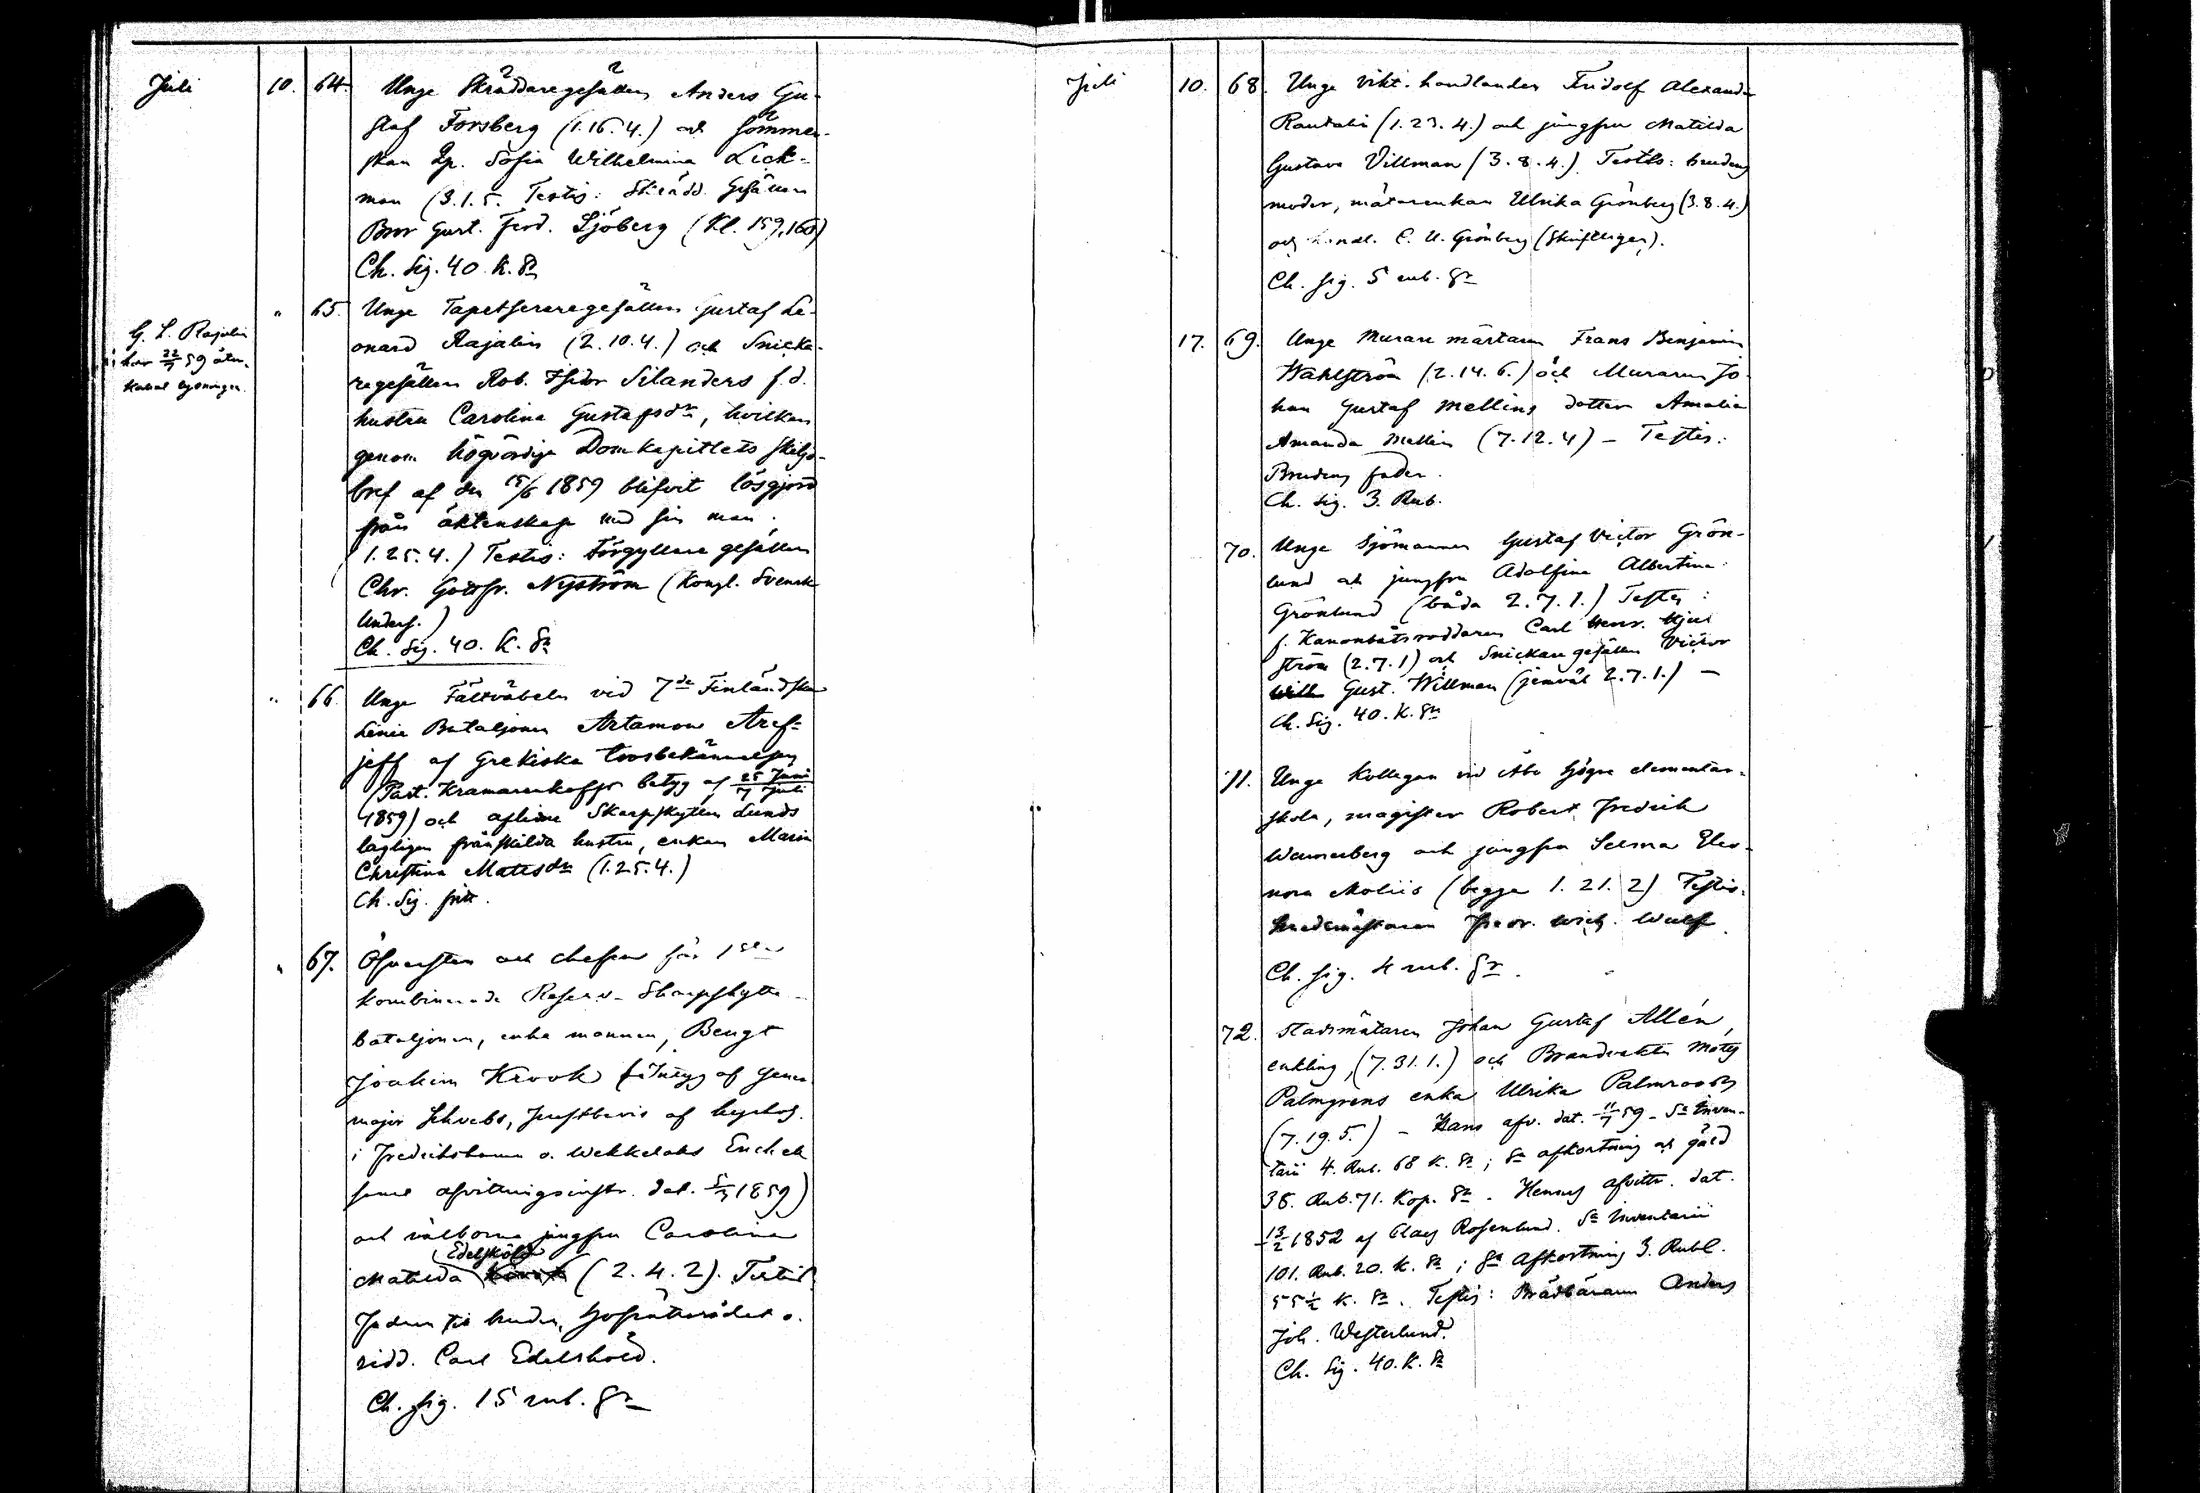 Juli 10. 64. Unge Skräddaregesällen Anders Gu-
staf Forsberg (1.16.4.) och Sömmer-
skan Sofia Wilhelmina Lick-
man (3.1.5. Testis: Skrädd. Gesällen
Bror Gust. Ferd. Sjöberg (Kl. 159,160)
Ch. Sig. 40 K. Sr
" 65. Unge Tapetseraregesällen Gustaf Le-
onard Rajalin (2.10.4.) och Snicka-
regesällen Rob. Isidor Silanders f.d.
hustru Carolina Gustafsdr, hvilken
genom högvördige Domkapitlets skiljo-
bref af den 15/6 1859 blifvit lösgjord
från äktenskap med sin man.
(1.25.4.) Testis: Förgyllare gesällen
Chr. Gottfr. Nyström (Kongl. Svensk
Unders.)
Ch. Sig. 40. K. Sr
G. L. Rajalin
har 22/7 59 åter-
kallat lysningen.
" 66. Unge Fältväbeln vid 7de Finländska
Linie Bataljonen Artamon Aref-
jeff af Grekiska trosbekännelsen
(Past. Kramarenkoffs betyg af 25 Juni/7 Juli
1859) och aflidne Skarpskytten Lunds
lagligen frånskilda hustru, enkan Maria
Christina Matsdr (1.25.4.)
Ch. Sig. fritt.
" 67. Öfversten och chefen för 1sta
kombinerade Reserv-Skarpskytte-
bataljonen, enke mannen, Bengt
Joakim Krook (Intyg af Gener.
major Schvebs, Prestbevis af kyrkoh.
i Fredrikshamn o. Wekkelaks Enchek
samt afvittringsinstr. dat. 5/7 1859)
och välborna jungfru Carolina
Edelsköld
Matilda (2.4.2). Testis
Fadren till bruden, Hofrättsrådet o.
ridd. Carl Edelsköld.
Ch. sig. 15 rub. Sr
Juli 10. 68. Unge vikt. handlanden Fridolf Alexander
Randalin (1.23.4.) och jungfru Matilda
Gustava Villman (3.8.4.) Testes: brudens
moder, mätarenkan Ulrika Grönberg (3.8.4.)
och handl. C. U. Grönberg (Skriftligen).
Ch. sig. 5 rub. Sr
17. 69. Unge Murare mästaren Frans Benjamin
Wahlström (2.14.6.) och Muraren Jo-
han Gustaf Mellins dotter Amalia
Amanda Mellin (7.12.4) - Testis:
Brudens fader.
Ch. Sig. 3. Rub.
70. Unge Sjömannen Gustaf Victor Grön-
lund och jungfru Adolfina Albertina
Grönlund (båda 2.7.1.) Testes:
f. Kanonbåtsroddaren Carl Henr. Hjul
ström (2.7.1) och Snickare gesällen Victor
Will Gust. Willman (jemväl 2.7.1.) -
Ch. Sig. 40. K. Sr
71. Unge Kollegan vid Åbo högre elementar-
skola, magister Robert Fredrik
Wennerberg och jungfru Selma Eleo-
nora Moliis (begge 1.21.2) Testis:
Fredr. Wilh. Wulff.
Ch. sig. 4 rub. Sr.
72. Stadsmätaren Johan Gustaf Allén,
enkling, (7.31.1.) och Brandvakten Mats
Palmgrens enka Ulrika Palmroos
(7.19.5.) - Hans afv. dat. 11/7 59 - Sa Inven-
tarii 4. Rub. 68 K. Sr; Sa afkortning och gäld
38. Rub. 71. Kop. Sr. Hennes afvittr. dat.
13/2 1852 af Claes Rosenlund. Sa Inventarii
101. Rub. 20. K. Sr; Sa Afkortning 3. Rubl.
55½ K. Sr. Testis: Brädbäraren Anders
Joh. Westerlund.
Ch. Sig. 40. K. Sr